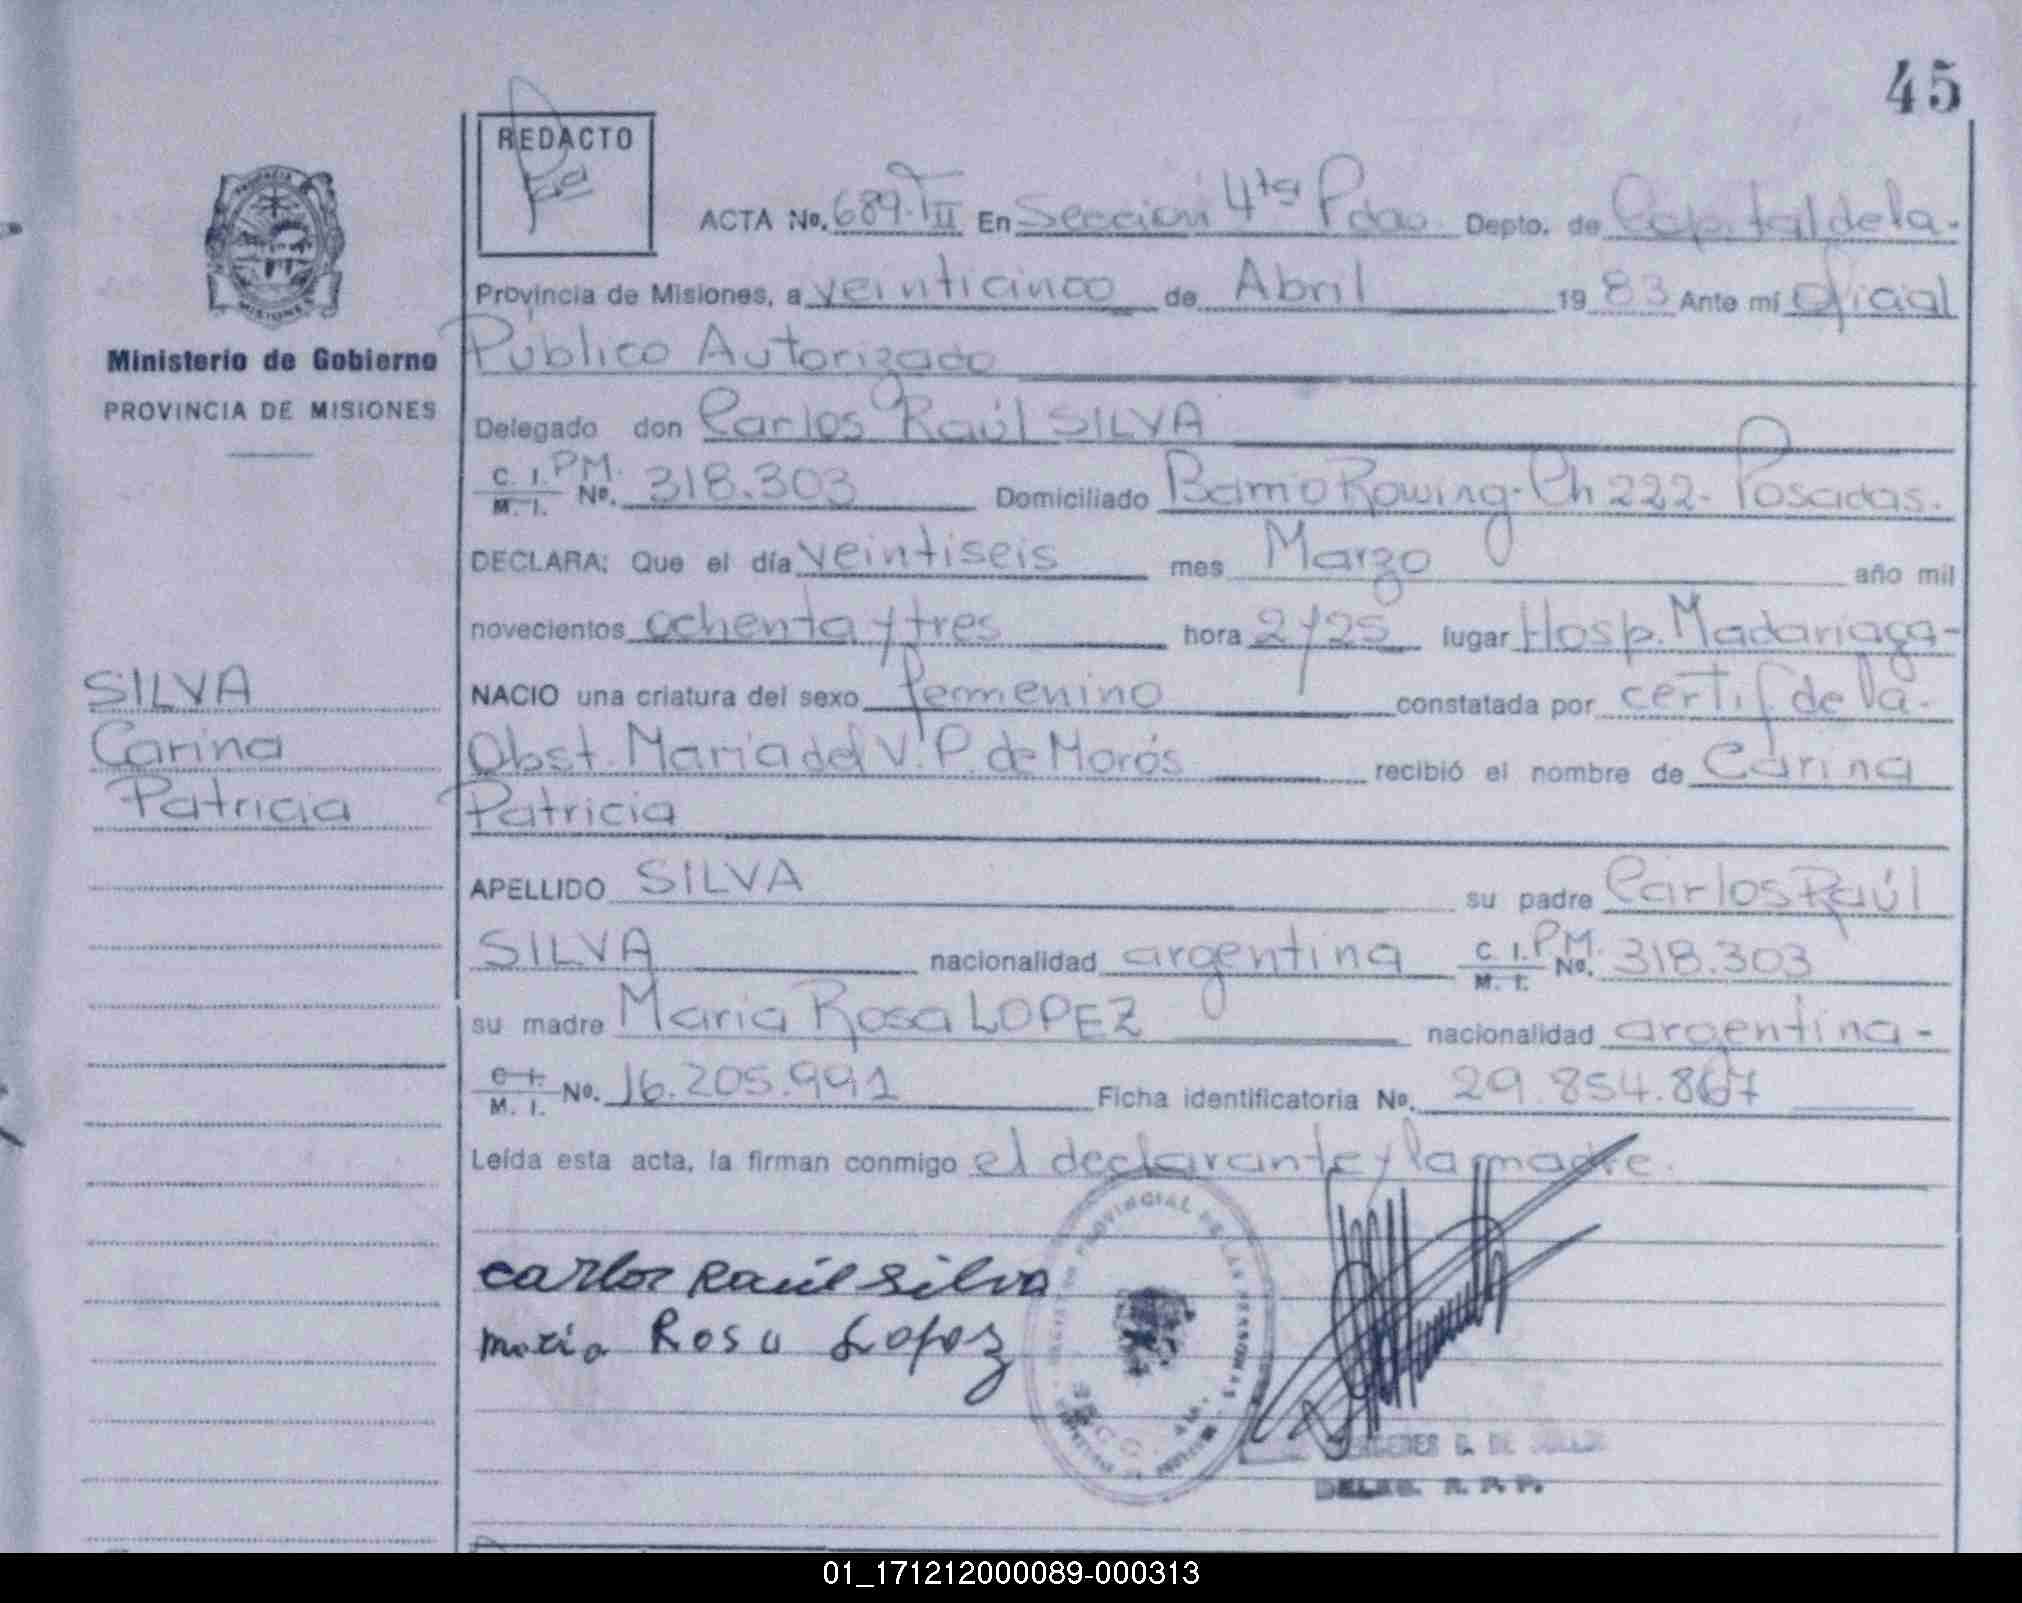 45
REDACTO
ACTA No. 689. T II En Sección 4ta Pdas. Depto. de Capital de la.
Provincia de Misiones, a veinticinco de Abril 1983 Ante mí Oficial
Público Autorizado
Delegado don Carlos Raúl SILVA
C. I. PM. M. I. No. 318.303 Domiciliado Barrio Rowing. Ch 222. Posadas.
DECLARA: Que el día veintiseis mes Marzo año mil
novecientos ochenta y tres hora 2 y 25 lugar Hosp. Madariaga-
NACIO una criatura del sexo femenino constatada por certif de la.
Obst. María del V. P. de Morós recibió el nombre de Carina
Patricia
APELLIDO SILVA su padre Carlos Raúl
SILVA nacionalidad argentina C. I. PM. M. I. No. 318.303
su madre Maria Rosa LOPEZ nacionalidad argentina-
C. I. M. I. No. 16.205.991 Ficha identificatoria No. 29.854.867
Leída esta acta, la firman conmigo el declarante y la madre.
Carlos Raúl Silva
Maria Rosa Lopez
PROVINCIA
MISIONES
Ministerio de Gobierno
PROVINCIA DE MISIONES
SILVA
Carina
Patricia
PROVINCIAL DE LAS PERSONAS
DELEG. R. P. P.
01_171212000089-000313